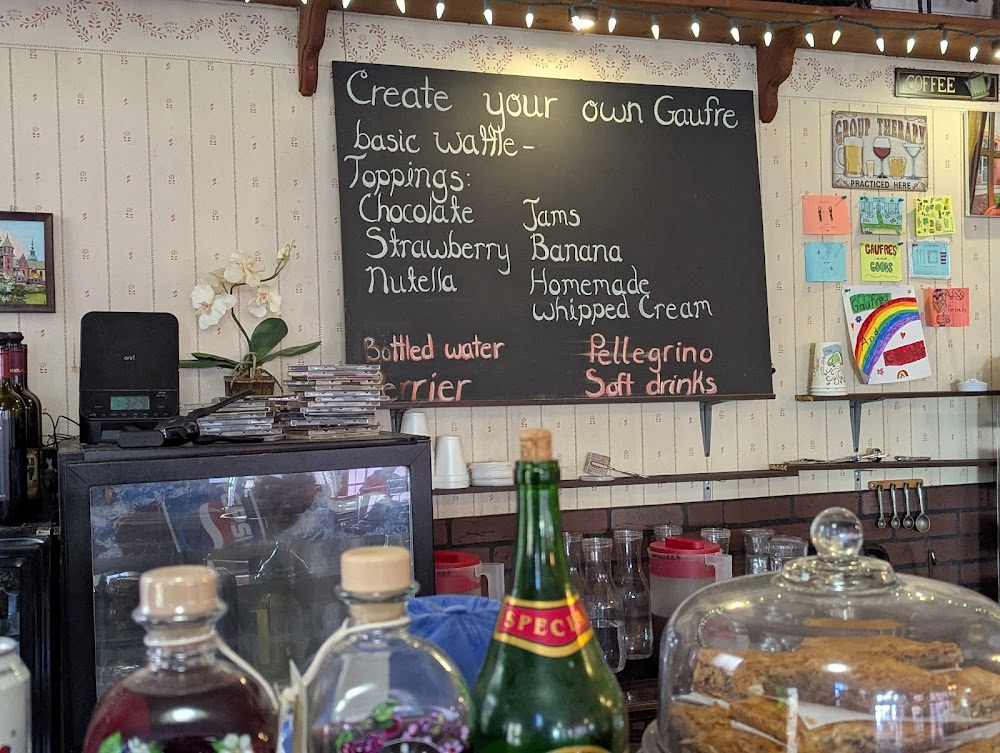 Create your own Gaufre
basic waffle -
Toppings:
Chocolate Jams
Strawberry Banana
Nutella Homemade
whipped Cream
Bottled water Pellegrino
Perrier Soft drinks
COFFEE
GROUP THERAPY
PRACTICED HERE
GAUFRES
and
GOODS
Gaufres
and
onn